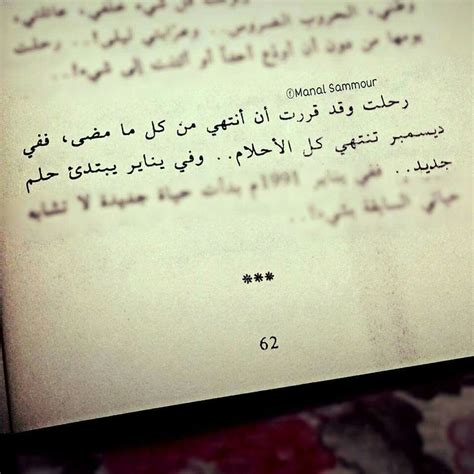 وطني، الحروب الضروس.. وعرابتي ليلى!.. رحلت
يومها من دون أن أودع أحداً أو ألتفت إلى شيء!..
ⓕManal Sammour
رحلت وقد قررت أن أنتهي من كل ما مضى، ففي
ديسمبر تنتهي كل الأحلام.. وفي يناير يبتدئ حلم
جديد.. ففي يناير 1991م بدأت حياة جديدة لا تشابه
حياتي السابقة بشيء!..
***
62